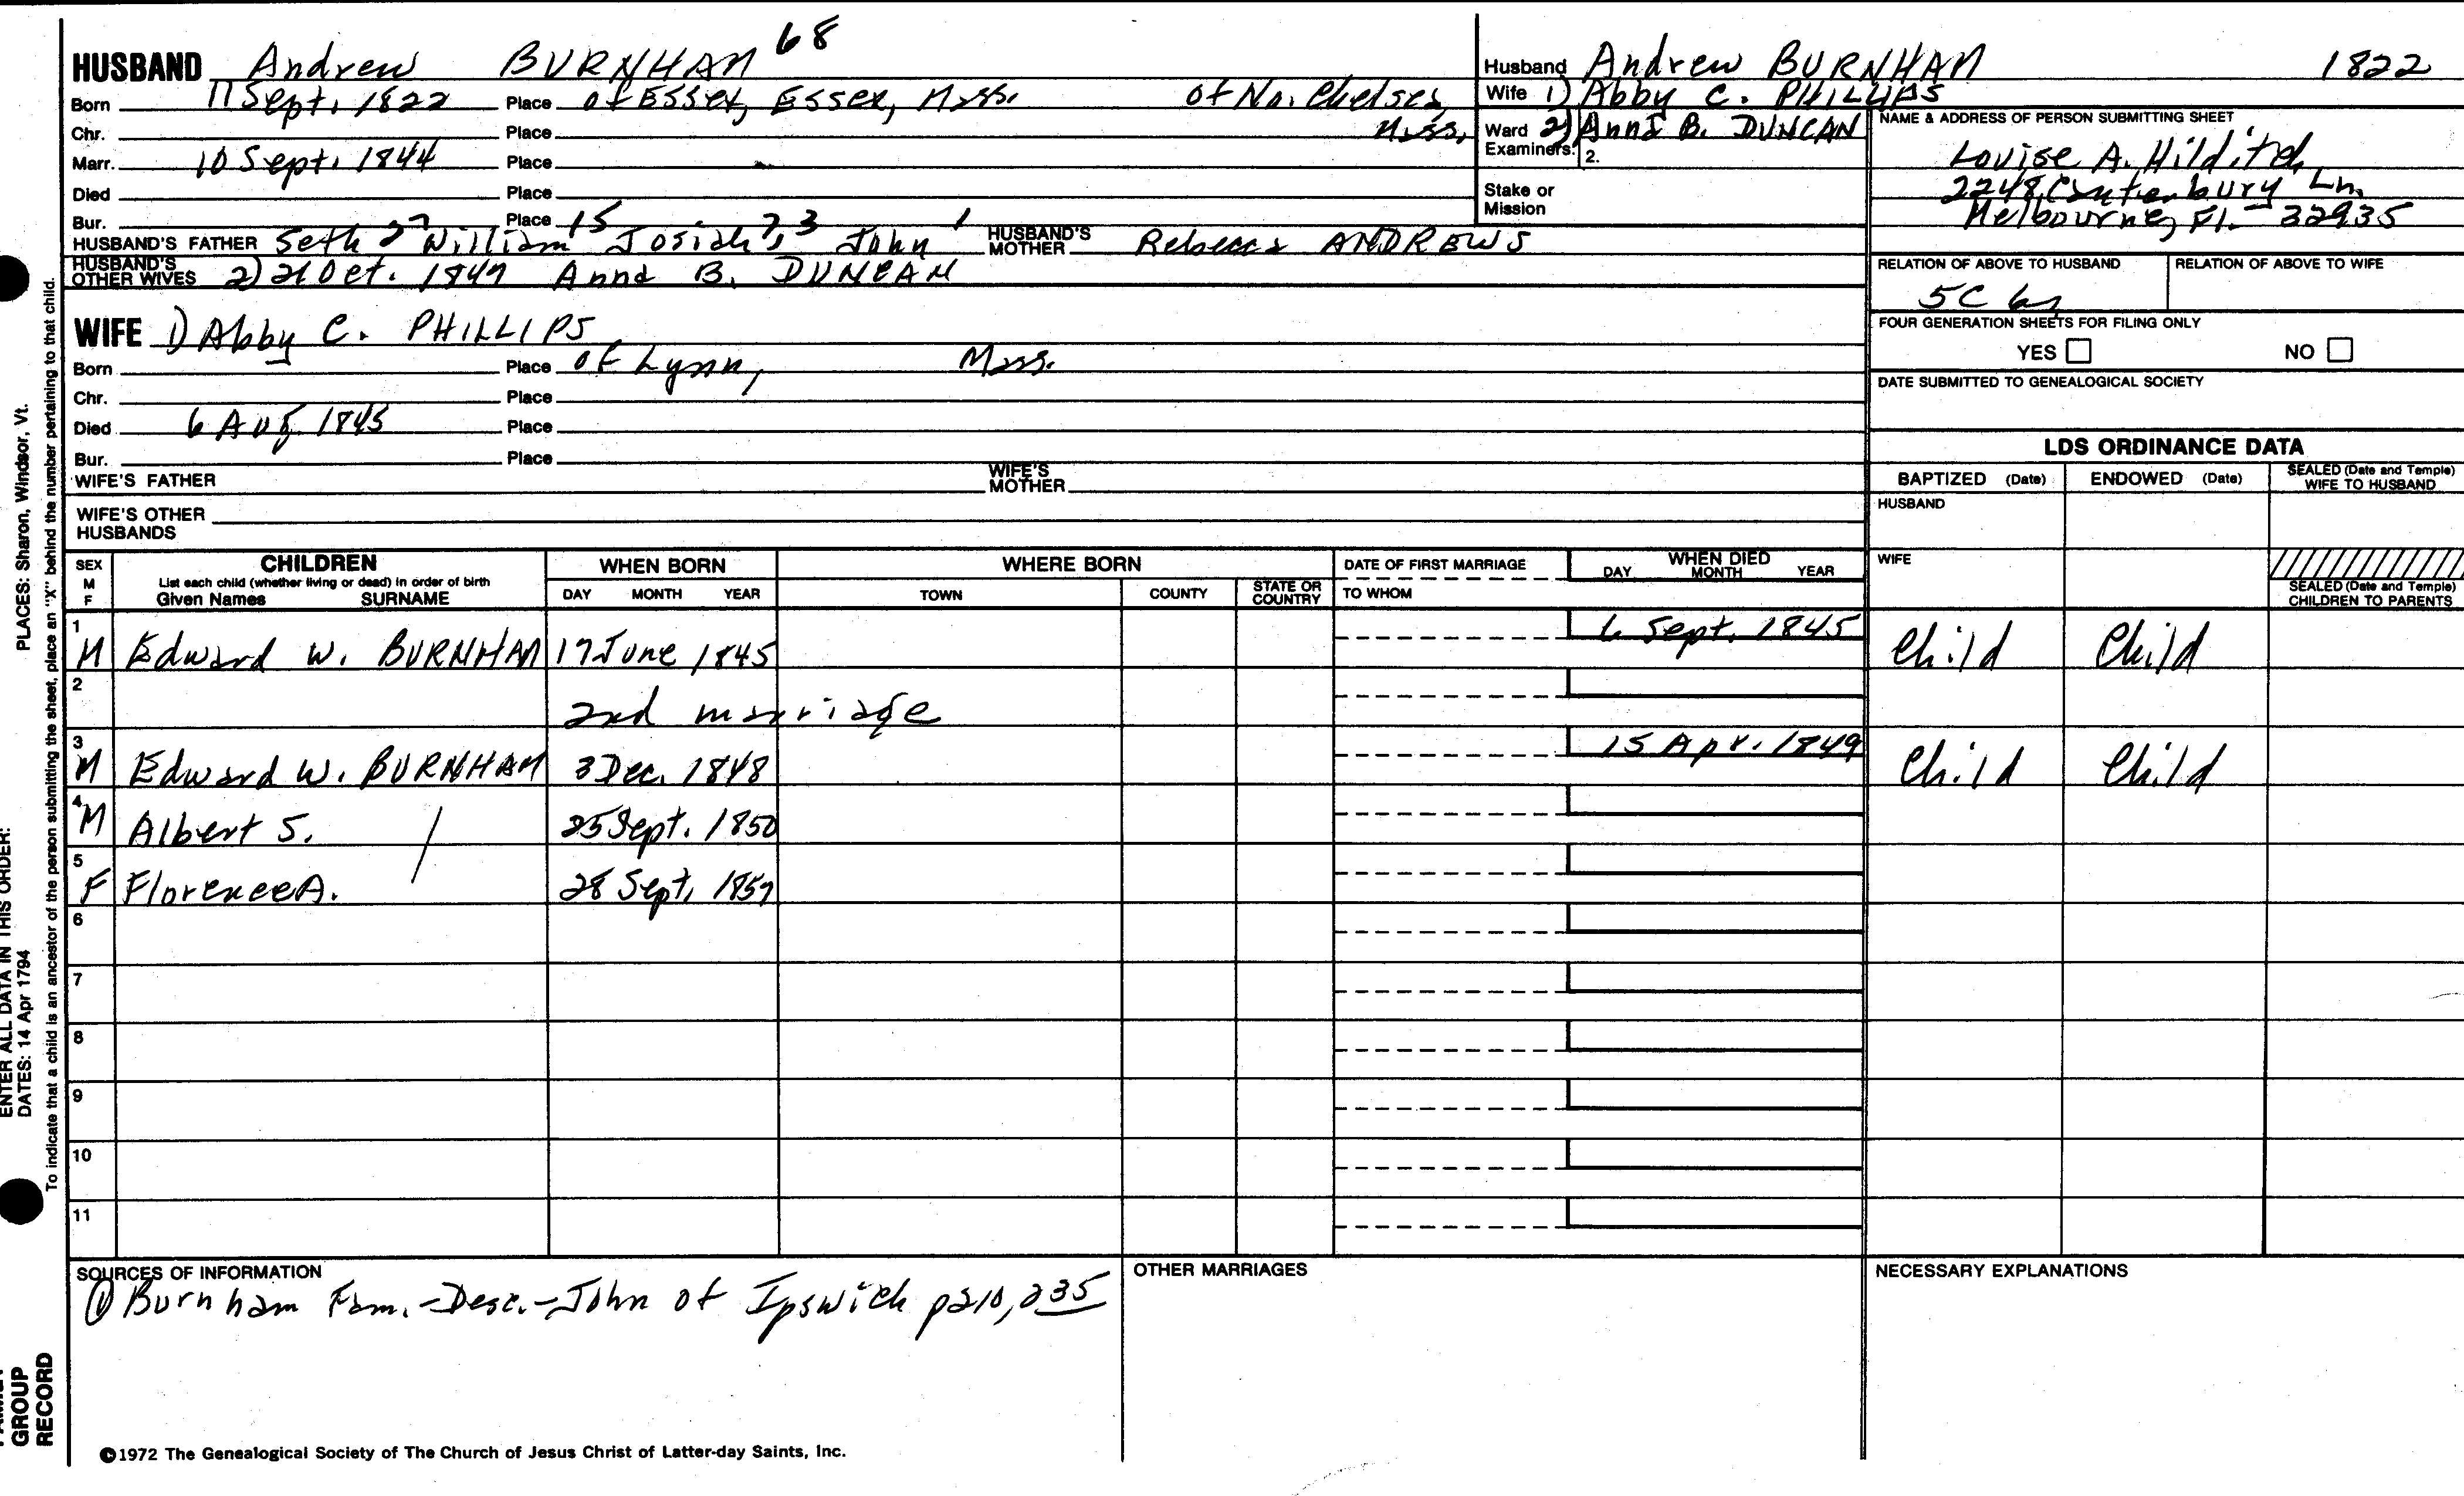 HUSBAND Andrew BURNHAM 68
Born 17 Sept. 1822 Place of Essex, Essex, Mass. of No. Chelsea,
Chr. Place Mass.
Marr. 10 Sept. 1844 Place
Died Place
Bur. Place
HUSBAND'S FATHER Seth 27 William 15 Josiah 7, 3 John 1 HUSBAND'S MOTHER Rebecca ANDREWS
HUSBAND'S OTHER WIVES 2) 21 Oct. 1847 Anna B. DUNCAN
Husband Andrew BURNHAM 1822
Wife 1) Abby C. PHILLIPS
Ward 2) Anna B. DUNCAN
Examiners: 2.
Stake or Mission
NAME & ADDRESS OF PERSON SUBMITTING SHEET
Louise A. Hilditch
2248 Canterbury Ln.
Melbourne, Fl. - 32935
RELATION OF ABOVE TO HUSBAND RELATION OF ABOVE TO WIFE
5C
FOUR GENERATION SHEETS FOR FILING ONLY
YES NO
DATE SUBMITTED TO GENEALOGICAL SOCIETY
WIFE 1) Abby C. PHILLIPS
Born Place of Lynn, Mass.
Chr. Place
Died 6 Aug. 1845 Place
Bur. Place
WIFE'S FATHER WIFE'S MOTHER
WIFE'S OTHER HUSBANDS
LDS ORDINANCE DATA
BAPTIZED (Date) ENDOWED (Date) SEALED (Date and Temple) WIFE TO HUSBAND
HUSBAND
WIFE
SEALED (Date and Temple) CHILDREN TO PARENTS
SEX M F CHILDREN List each child (whether living or dead) in order of birth Given Names SURNAME WHEN BORN DAY MONTH YEAR WHERE BORN TOWN COUNTY STATE OR COUNTRY DATE OF FIRST MARRIAGE TO WHOM WHEN DIED DAY MONTH YEAR
1 M Edward W. BURNHAM 17 June 1845 6 Sept. 1845 Child Child
2 2nd marriage
3 M Edward W. BURNHAM 3 Dec. 1848 15 Apr. 1849 Child Child
4 M Albert S. / 25 Sept. 1850
5 F Florence A. 28 Sept. 1857
6
7
8
9
10
11
SOURCES OF INFORMATION
① Burnham Fam. - Desc. - John of Ipswich p210, 235
OTHER MARRIAGES
NECESSARY EXPLANATIONS
©1972 The Genealogical Society of The Church of Jesus Christ of Latter-day Saints, Inc.
ENTER ALL DATA IN THIS ORDER:
DATES: 14 Apr 1794 PLACES: Sharon, Windsor, Vt.
To indicate that a child is an ancestor of the person submitting the sheet, place an "X" behind the number pertaining to that child.
GROUP
RECORD